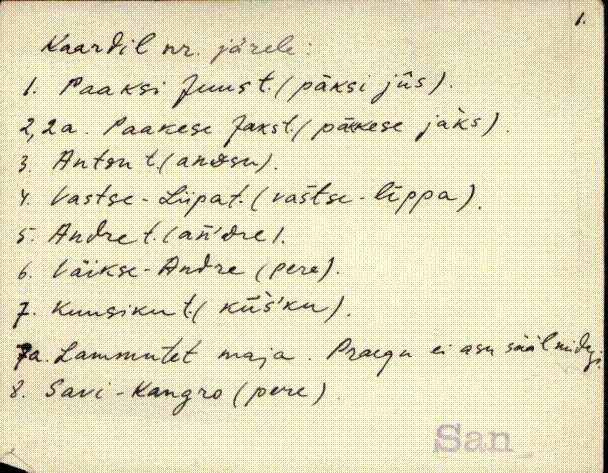 1.
Kaardil nr. järele:
1. Paaksi Juus t. (pāksi jūs).
2, 2a. Paakese Jaks t. (pākese jāks).
3. Antsu t. (andsu).
4. Vastse-Liipa t. (vaštse-līppa).
5. Andre t. (añ'dre).
6. Väikse-Andre (pere).
7. Kuusiku t. (kūš'ku).
7a. Lammutet maja. Praegu ei asu sääl midagi.
8. Savi-Kangro (pere)
San